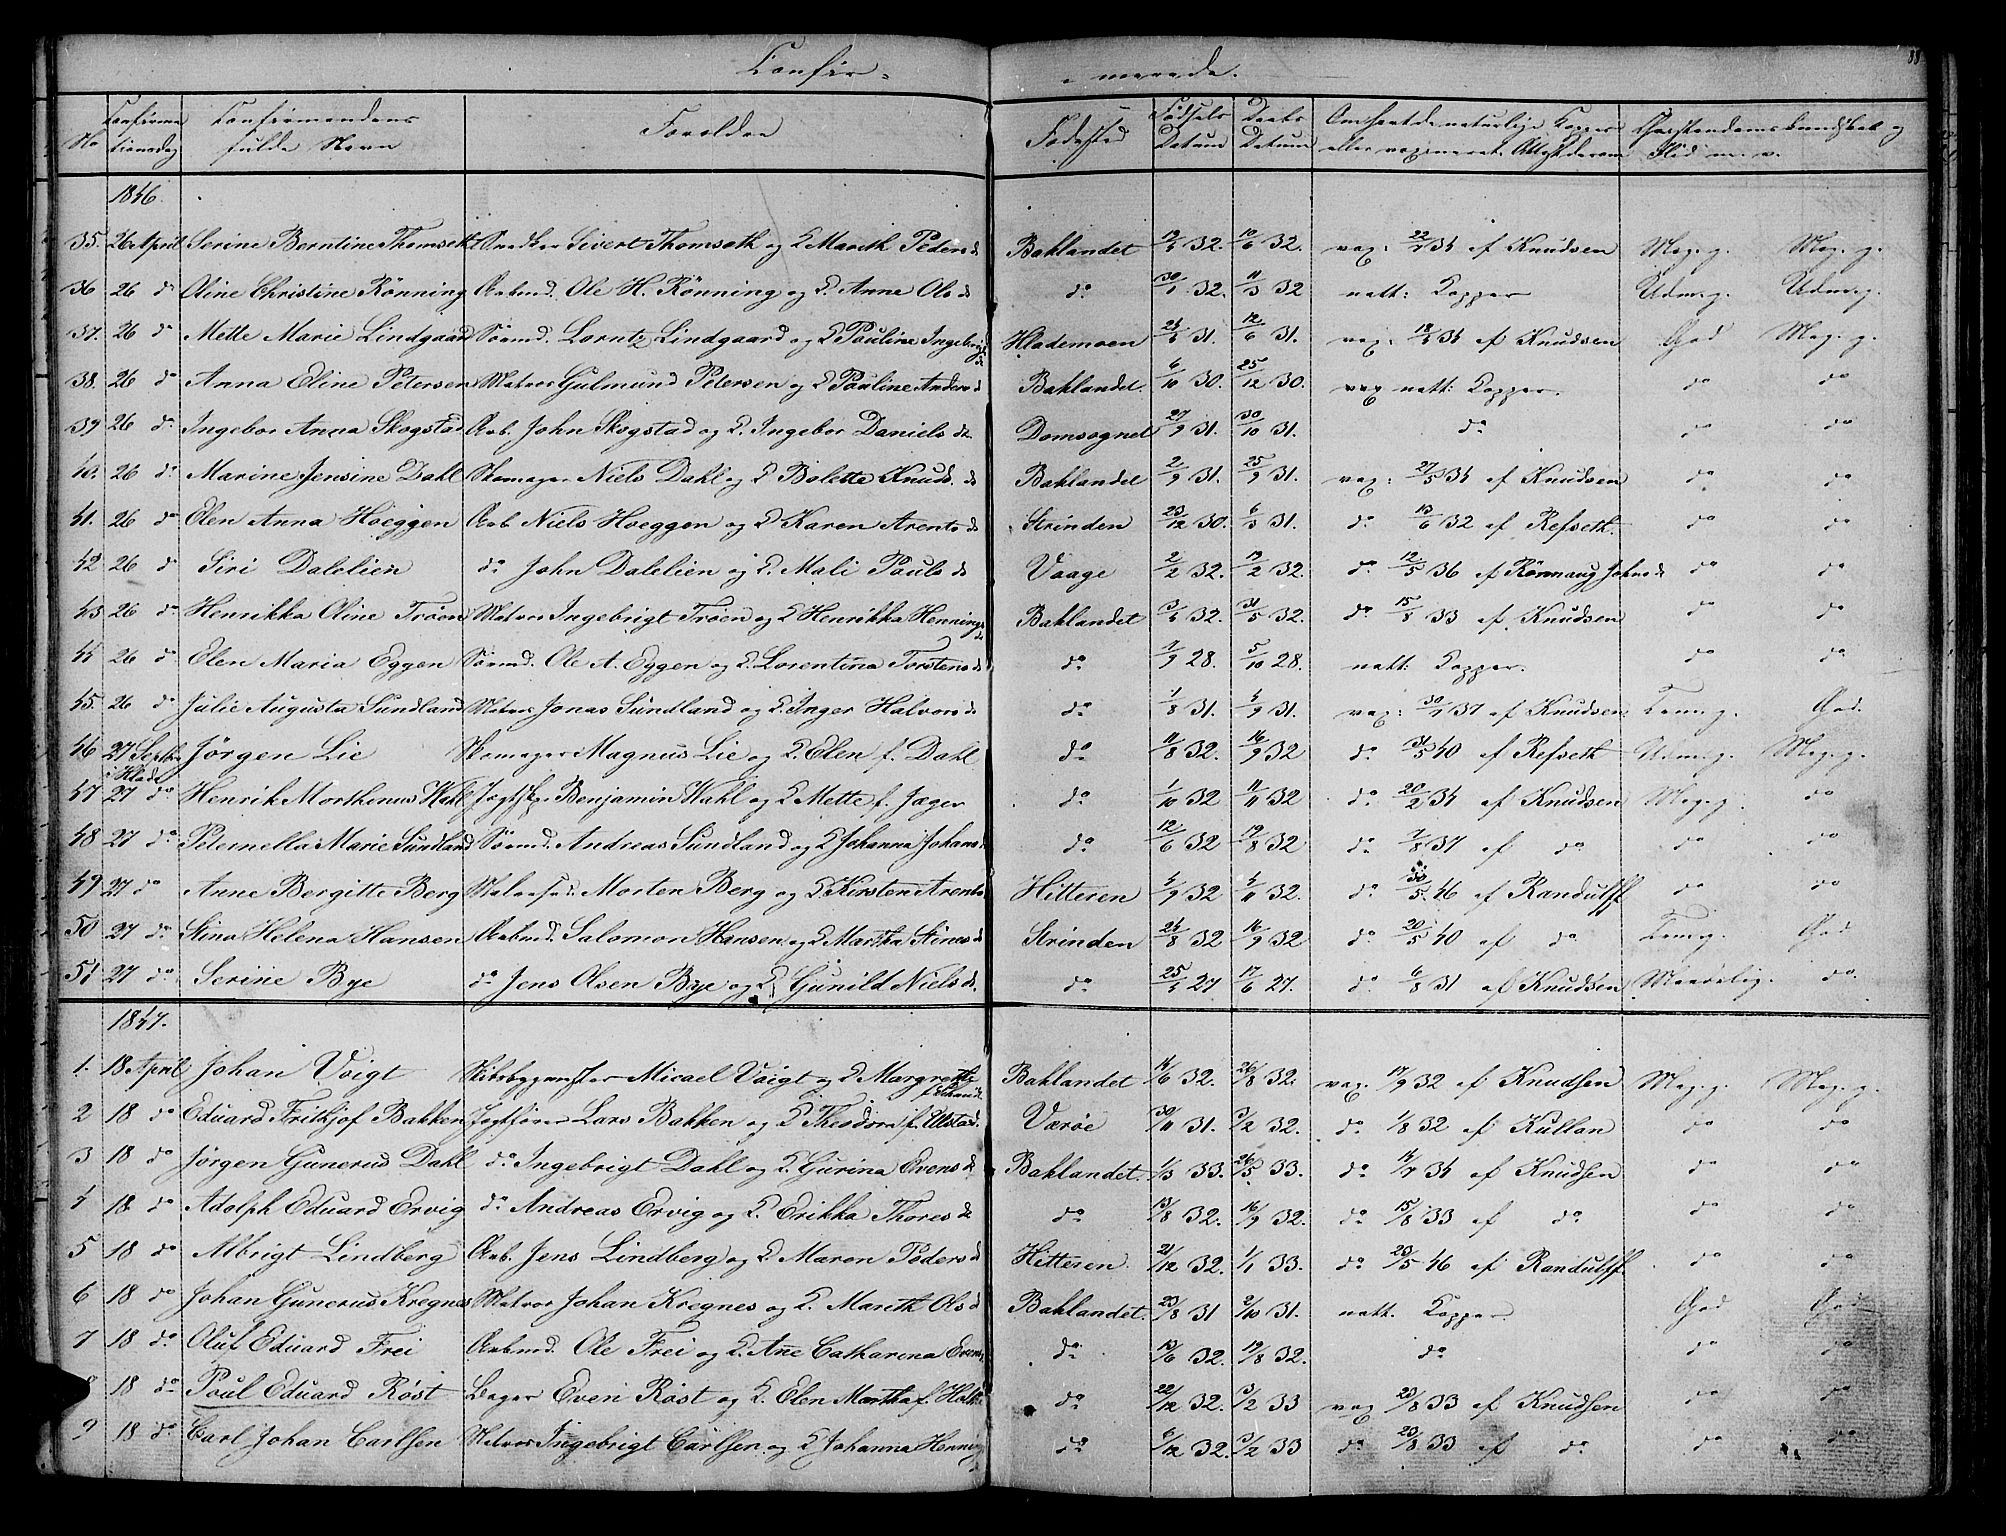 Confir=
= merede.
88
No
Confirma tionsdag
Confirmandens fulde Navn
Forældre
Fødested
Fødsels Datum
Daabs Datum
Om havt de naturlige Kopper eller vaxineret. Attest derom
Christendomskundskab og Flid m. v.
1846.
35. 26 April Serine Berntine Thomseth Snedker Sivert Thomseth og K Marith Peders d Baklandet 32. 10/6 32. vax: 22/7 34 af Knudsen Meg. g. Meg. g.
36 26 do Oline Christine Rönning Arbmd. Ole H. Rönning og K. Anne Ols d do 30/1 32. 11/3 32 natt: Kopper Udm. g. Udm. g.
37. 26 do Mette Marie Lindgaard Sömd. Lorntz Lindgaard og K Pauline Ingebrigts d Hlademoen 31. 12/6 31. vax: 34 af Knudsen God Meg. g.
38. 26 do Anna Eline Petersen Matros Gulmund Petersen og K Pauline Anders d Baklandet. 6/10 30. 25/12 30. natt: Kopper. do do
39 26 do Ingebor Anna Skogstad Arb. John Skogstad og K. Ingebor Daniels d. Domsognet 27/9 31. 30/10 31. do do do
40. 26 do Marine Jensine Dahl Skomager Niels Dahl og K Bolette Knuds. d Baklandet 2/9 31. 25/9 31. vax: 27/5 34 af Knudsen do do
41. 26 do Elen Anna Hoeggen Arb. Niels Hoeggen og K Karen Arents d Strinden 23/12 30. 6/3 31. do 13/6 32 af Refseth. do do
42 26 do Siri Dalelien do John Dalelien og K. Mali Pouls d Vaage 2/2 32. 19/2 32. do 12/5 36 af Rönnaug Johns d do do
43 26 do Henrikka Oline Tröen Matros Ingebrigt Tröen og K Henrikka Hennings d Baklandet 32. 31/5 32. do 33 af Knudsen do do
44 26 do Elen Maria Eggen Sömd. Ole A. Eggen og K. Lorentina Torstens d do 7/9 28. 5/10 28. natt: Kopper. do do
45. 26 do Julie Augusta Sundland Matros Jonas Sundland og K. Inger Halvors d do 1/8 31. 4/9 31. vax: 30/7 37 af Knudsen Temg. God.
46 27 Septbr i Hlade Jörgen Lie Skomager Magnus Lie og K. Elen f. Dahl do 11/8 32. 16/9 32 do 31/5 40 af Refseth Udm. g. Meg. g.
47 27 do Henrik Morthenus Wahl Benjamin Wahl og K Mette f. Jæger do 1/10 32 11/11 32 do 20/2 34 af Knudsen Meg. g. do
48 27 do Peternella Marie Sundland Sömd. Andreas Sundland og K Johanna Johans d do 12/6 32 19/8 32 do 7/8 37 af do do do
49 27 do Anne Bergitte Berg Morten Berg og K. Kirsten Arents d Hitteren 4/9 32 4/11 32. do 46 af Randulff do do
50 27 do Stina Helena Hansen Arbmd. Salomon Hansen og K Martha Stines d Strinden 24/8 32 16/9 32 do 20/5 40 af do Temg. God
51 27 do Serine Bye do Jens Olsen Bye og K Gunild Niels d. do 27 17/6 27. do 6/8 31 af Knudsen Maadelig. do.
1847.
1. 18 April Johan Voigt Skibsbygmester Micael Voigt og K Margrethe Baklandet 16/6 32. 26/8 32. vax: 17/9 32 af Knudsen Meg. g. Meg. g.
2 18 do Eduard Frithjof Bakken Jagtfører Lars Bakken og K Theodora f. Ulstad. Værøe 30/11 31. 3/2 32. do 1/8 32 af Kullan do do
3 18 do Jørgen Gunerus Dahl do Ingebrigt Dahl og K. Gurina Evens d. Baklandet. 1/3 33. 26/5 33. do 34 af Knudsen do do
4 18 do Adolph Eduard Ervig do Andreas Ervig og K. Erikka Thores d do 13/8 32. 16/9 32. do 15/8 33 af do do do
5 18 do Albrigt Lindberg Arb. Jens Lindberg og K Maren Peders d Hitteren 21/12 32. 1/1 33. do 23/5 46 af Randulff do do
6 18 do Johan Gunerus Kregnes Matros Johan Kregnes og K. Marith Ols d Baklandet. 23/8 31 2/10 31. natt. Kopper God God
7 18 do. Oluf Eduard Frei Arbmd. Ole Frei og K. Ane Catharina Evens d. do 13/6 32. 19/8 32. do do do
18 do Poul Eduard Röst Bager Even Röst og K. Elen Martha f. do 22/12 32. 3/2 33 vax 23/8 33 af Knudsen do do
9 18 do Carl Johan Carlsen Matros Ingebrigt Carlsen og K Johanna do 6/12 32. 3/2 33 do 23/8 33 af do do do